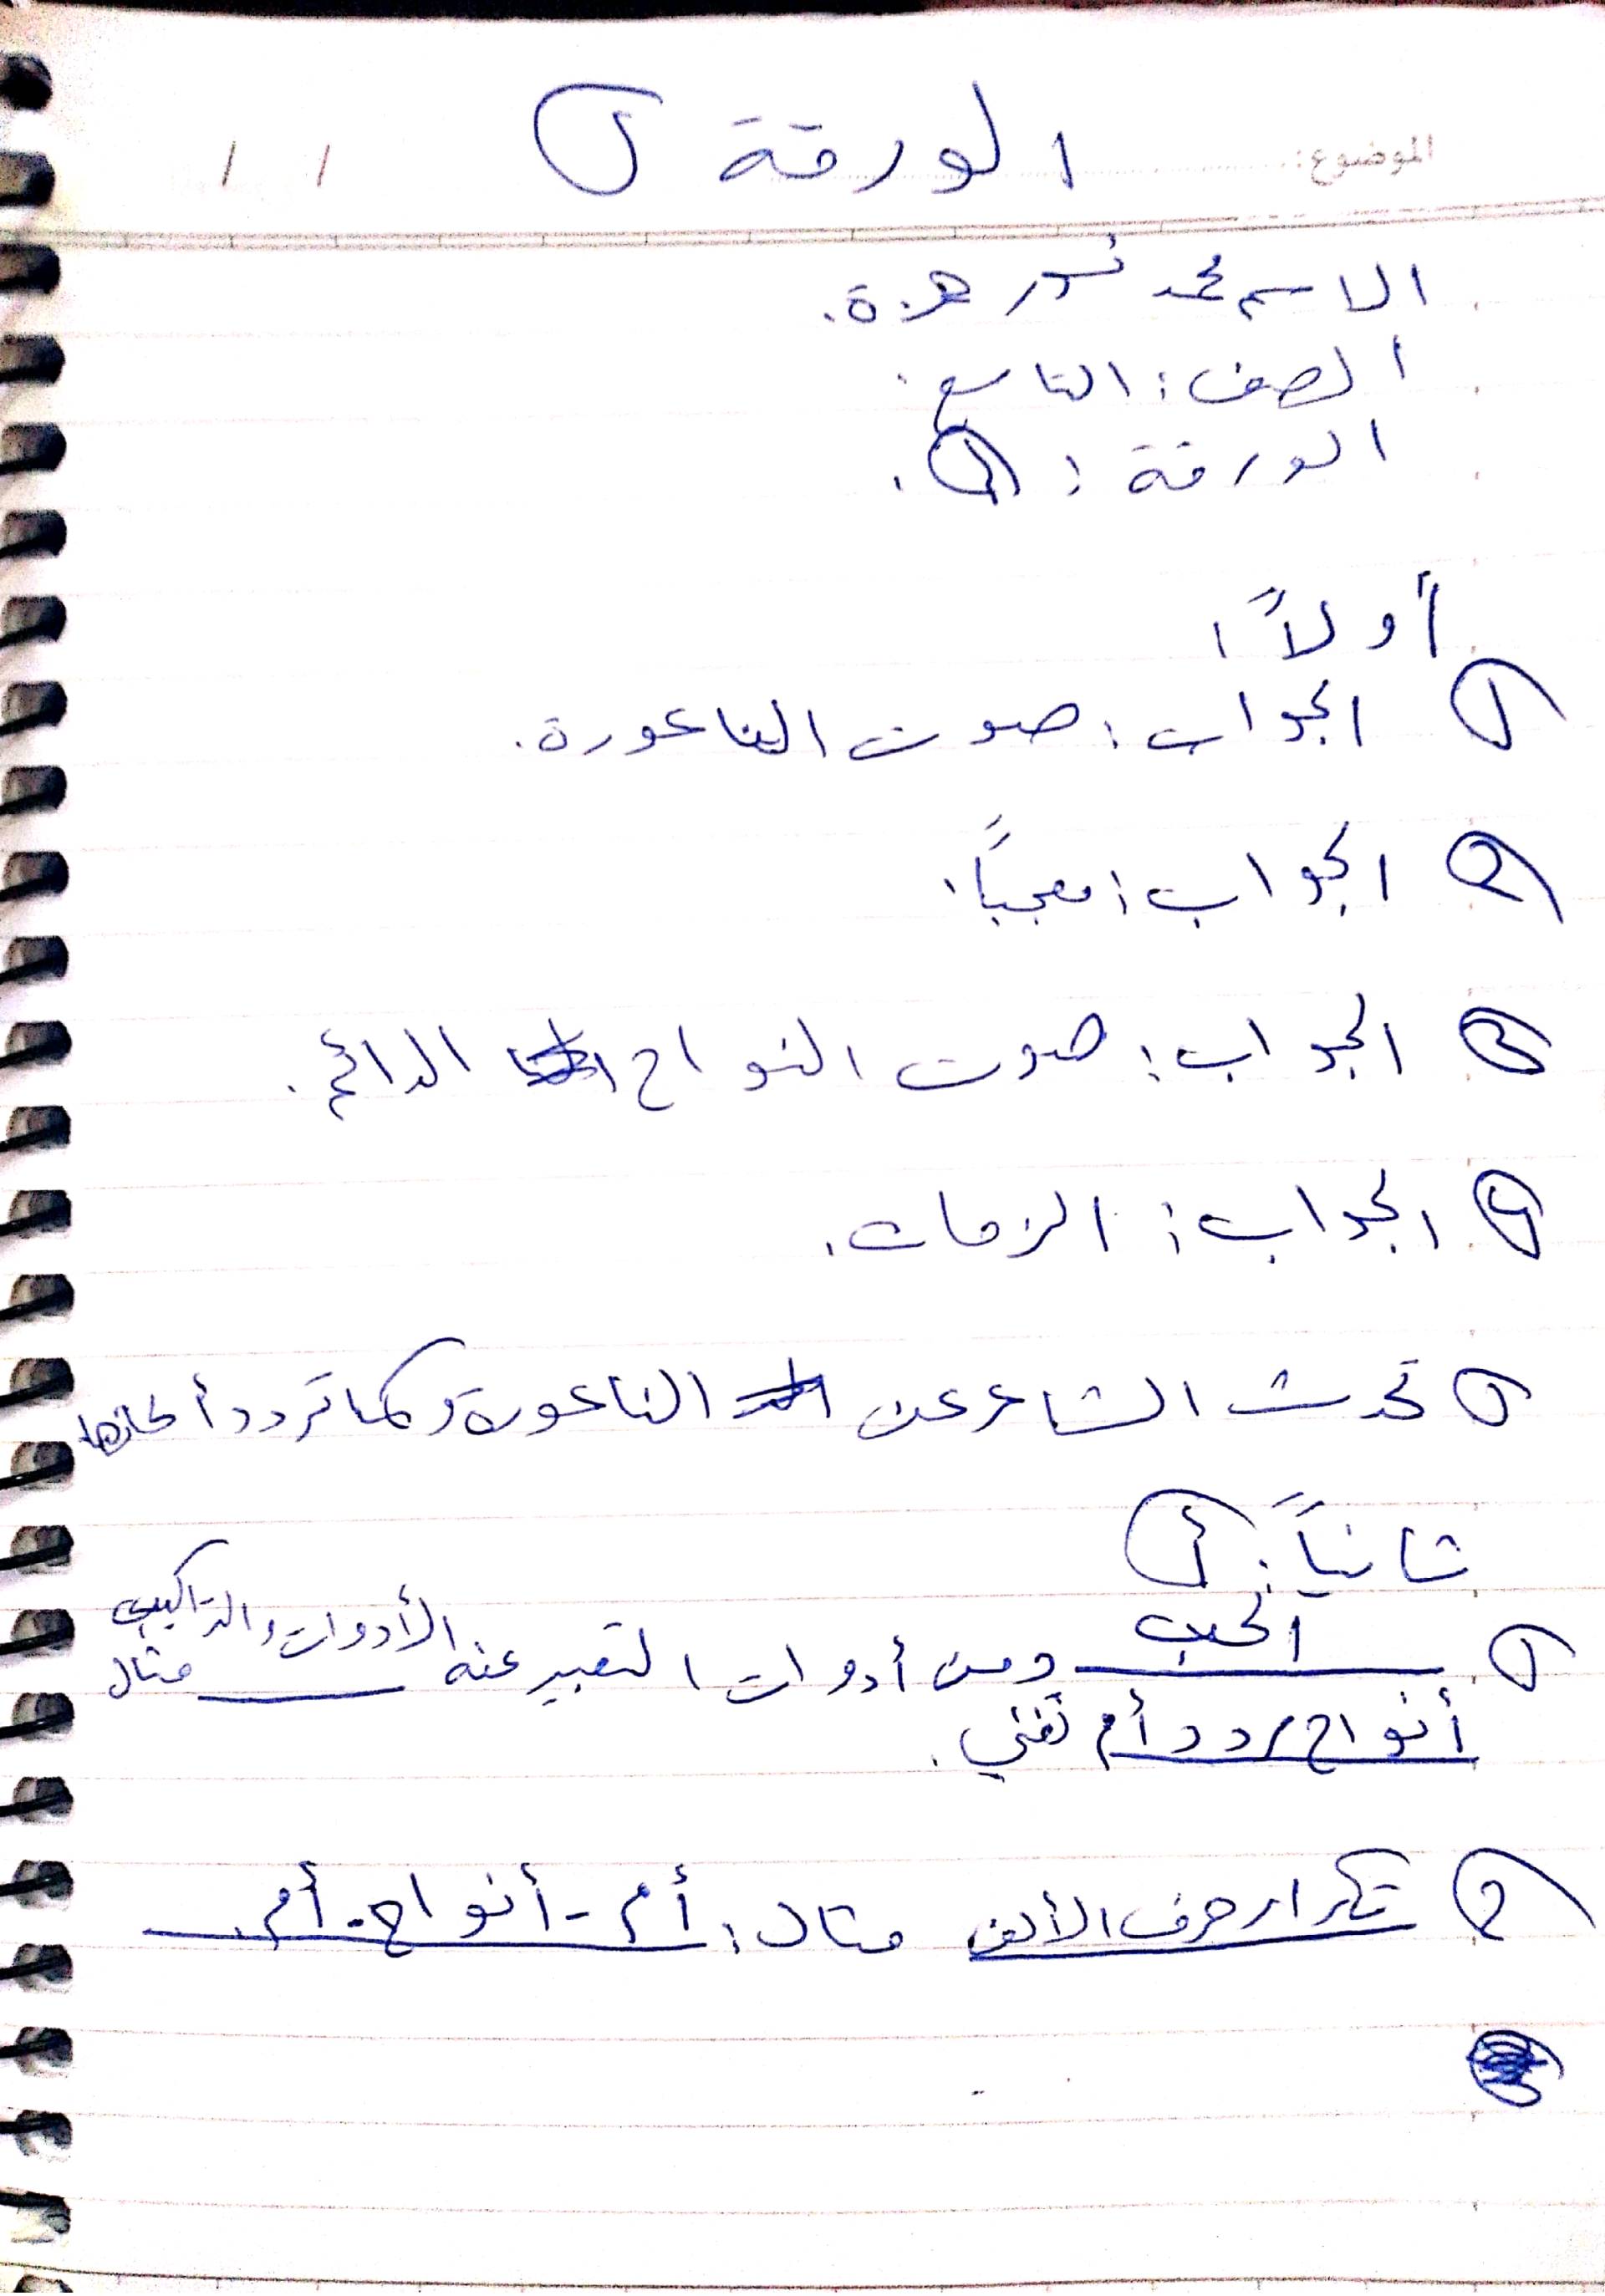 الموضوع: / /
الورقة
الاسم محمد نور هزة.
الصف: التاسع.
الورقة: 1.
أولاً:
1 الجواب: صوت الناعورة.
2 الجواب: معجباً.
3 الجواب: صوت النواح الدائم.
4 الجواب: الزمات.
تحدث الشاعر عن الناعورة وكما تردد ألحانها
ثانياً: أ
1 الحب ومن أدوات التعبير عنه الأدوات والتراكيب مثال
أنواح ردد أم تغني.
2 تكرار حرف الألف مثال: أم - أنواح - أم.